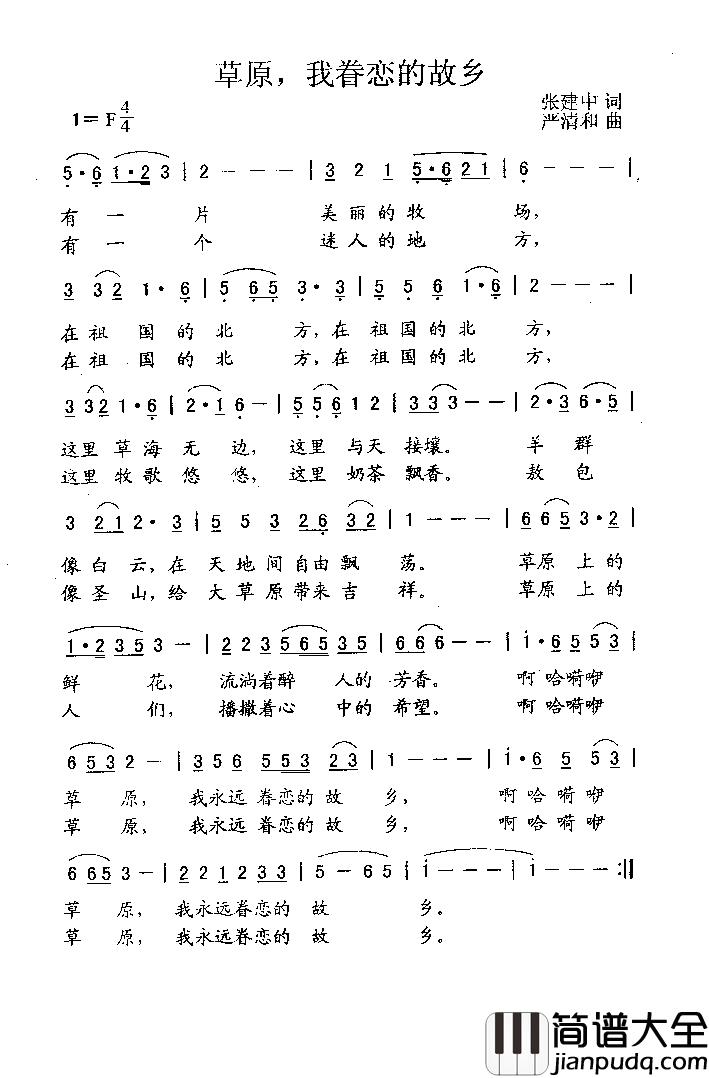 草原，我眷恋的故乡
1=F 4/4
张建中 词
严清和 曲
5·6 1·2 3 | 2 - - - | 3 2 1 5·6 2 1 | 6 - - - |
有一片 美丽的牧场，
有一个 迷人的地方，
3 3 2 1·6 | 5 6 5 3·3 | 5 5 6 1·6 | 2 - - - |
在祖国的北方，在祖国的北方，
在祖国的北方，在祖国的北方，
3 3 2 1·6 | 2·1 6 - | 5 5 6 1 2 | 3 3 3 - - | 2·3 6·5 |
这里草海无边，这里与天接壤。羊群
这里牧歌悠悠，这里奶茶飘香。敖包
3 2 1 2·3 | 5 5 3 2 6 3 2 | 1 - - - | 6 6 5 3·2 |
像白云，在天地间自由飘荡。草原上的
像圣山，给大草原带来吉祥。草原上的
1·2 3 5 3 - | 2 2 3 5 6 5 3 5 | 6 6 6 - - | i·6 5 5 3 |
鲜花，流淌着醉人的芳香。啊哈嗬咿
人们，播撒着心中的希望。啊哈嗬咿
6 5 3 2 - | 3 5 6 5 5 3 2 3 | 1 - - - | i·6 5 5 3 |
草原，我永远眷恋的故乡，啊哈嗬咿
草原，我永远眷恋的故乡，啊哈嗬咿
6 6 5 3 - | 2 2 1 2 3 3 | 5 - 6 5 | i - - - | i - - - :||
草原，我永远眷恋的故乡。
草原，我永远眷恋的故乡。
简谱大全
jianpudq.com